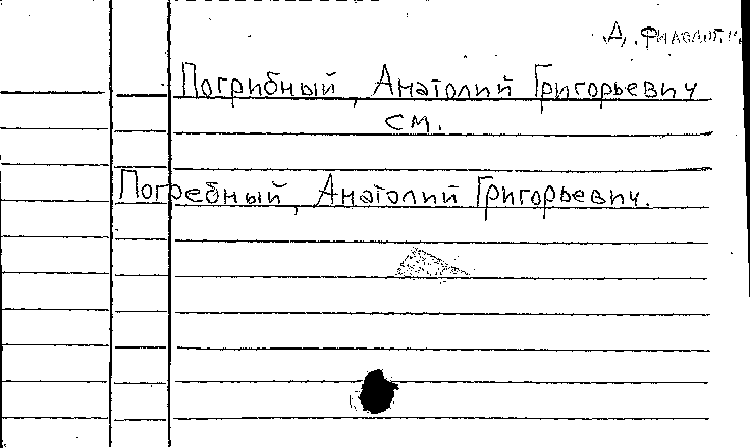 Д. филолог.н.
Погрибный, Анатолий Григорьевич
см.
Погребный, Анатолий Григорьевич.